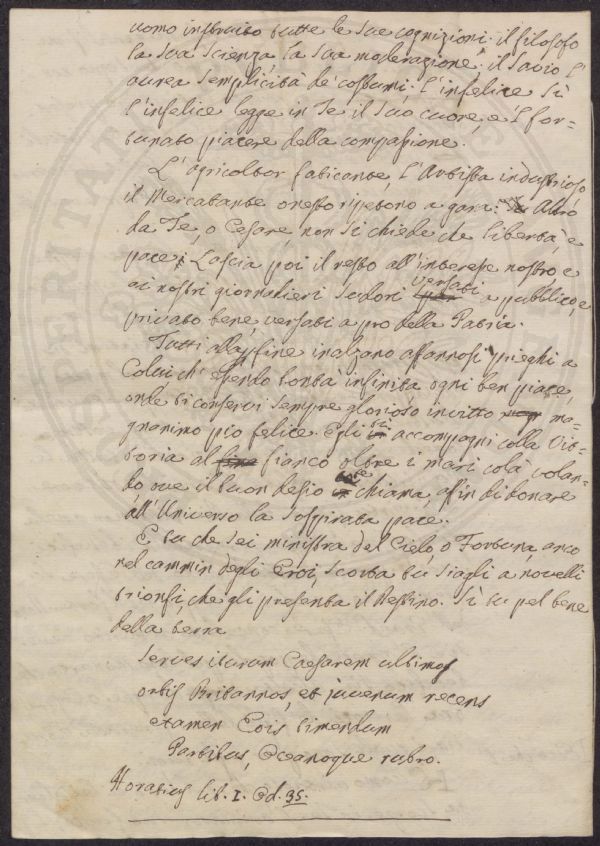 uomo instruito tutte le sue cognizioni: il filosofo
la sua scienza, la sua moderazione: il savio l'
aurea semplicità de' costumi: l'infelice sì
l'infelice legge in Te il suo cuore, e 'l for=
tunato piacere della compassione.
L'agricoltor faticante, l'Artista industrioso
il Mercatante onesto ripetono a gara: Altro
da Te, o Cesare non si chiede che libertà, e
pace; Lascia poi il resto all'interesse nostro e
ai nostri giornalieri sudori versati a pubblico, e
privato bene, versati a pro della Patria.
Tutti alla fine inalzano affannosi prieghi a
Colui ch'essendo bontà infinita ogni ben piace,
onde ti conservi sempre glorioso invitto ma=
gnanimo pio felice. Egli ti accompagni colla Vit=
toria al fianco oltre i mari colà volan=
do ove il buon desio chiama, affin di donare
all'Universo la sospirata pace.
E tu che sei ministra del Cielo, o Fortuna, anco
nel cammin degli Eroi, scorta tu siagli a novelli
trionfi, che gli presenta il Destino. Sì tu pel bene
della terra
Serves iturum Caesarem ultimos
orbis Britannos, et juvenum recens
examen Eois timendum
Partibus, Oceanoque rubro.
Horatius lib. I. Od. 35.